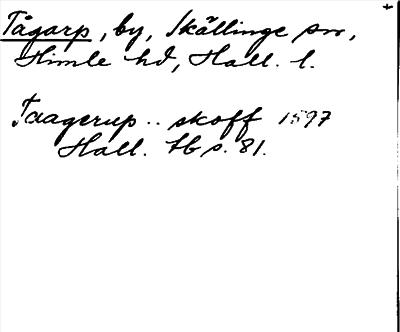 Tågarp, by, Skällinge sn,
Himle hd, Hall. l.
Taagerup .. skoff 1597
Hall. tb s. 81.